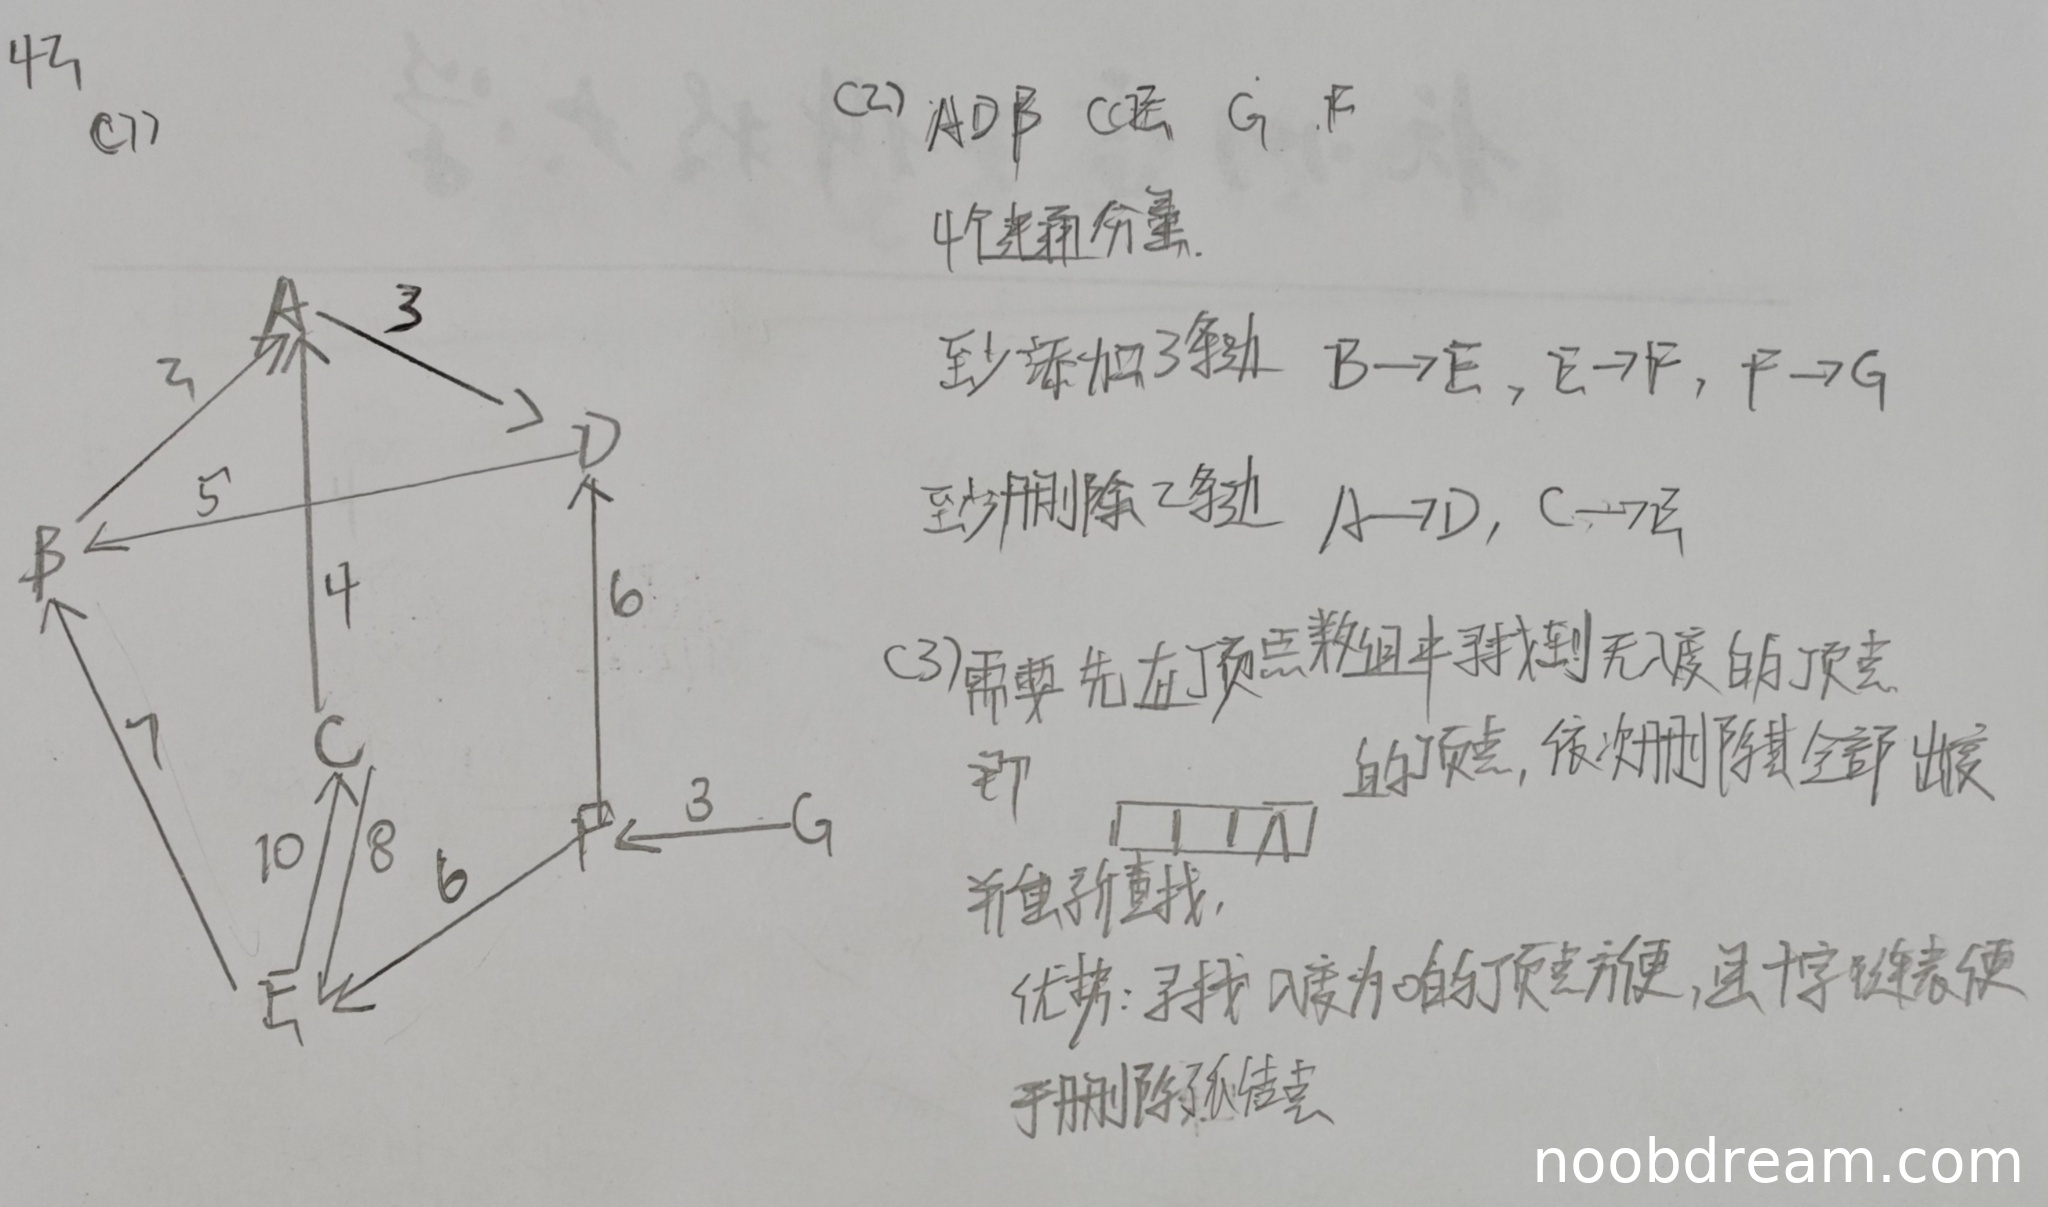 42
(1)
A
3
2
D
5
B
4
6
C
7
10
8
F
3
G
6
E
(2) ADB CE G F
4个连通分量.
至少添加3条边 B→E, E→F, F→G
至少删除2条边 A→D, C→E
(3)需要先在顶点数组中寻找到无入度的顶点
即 的顶点,依次删除其全部出度
∧
并重新查找,
优势:寻找入度为0的顶点方便,且十字链表便
于删除弧结点
noobdream.com